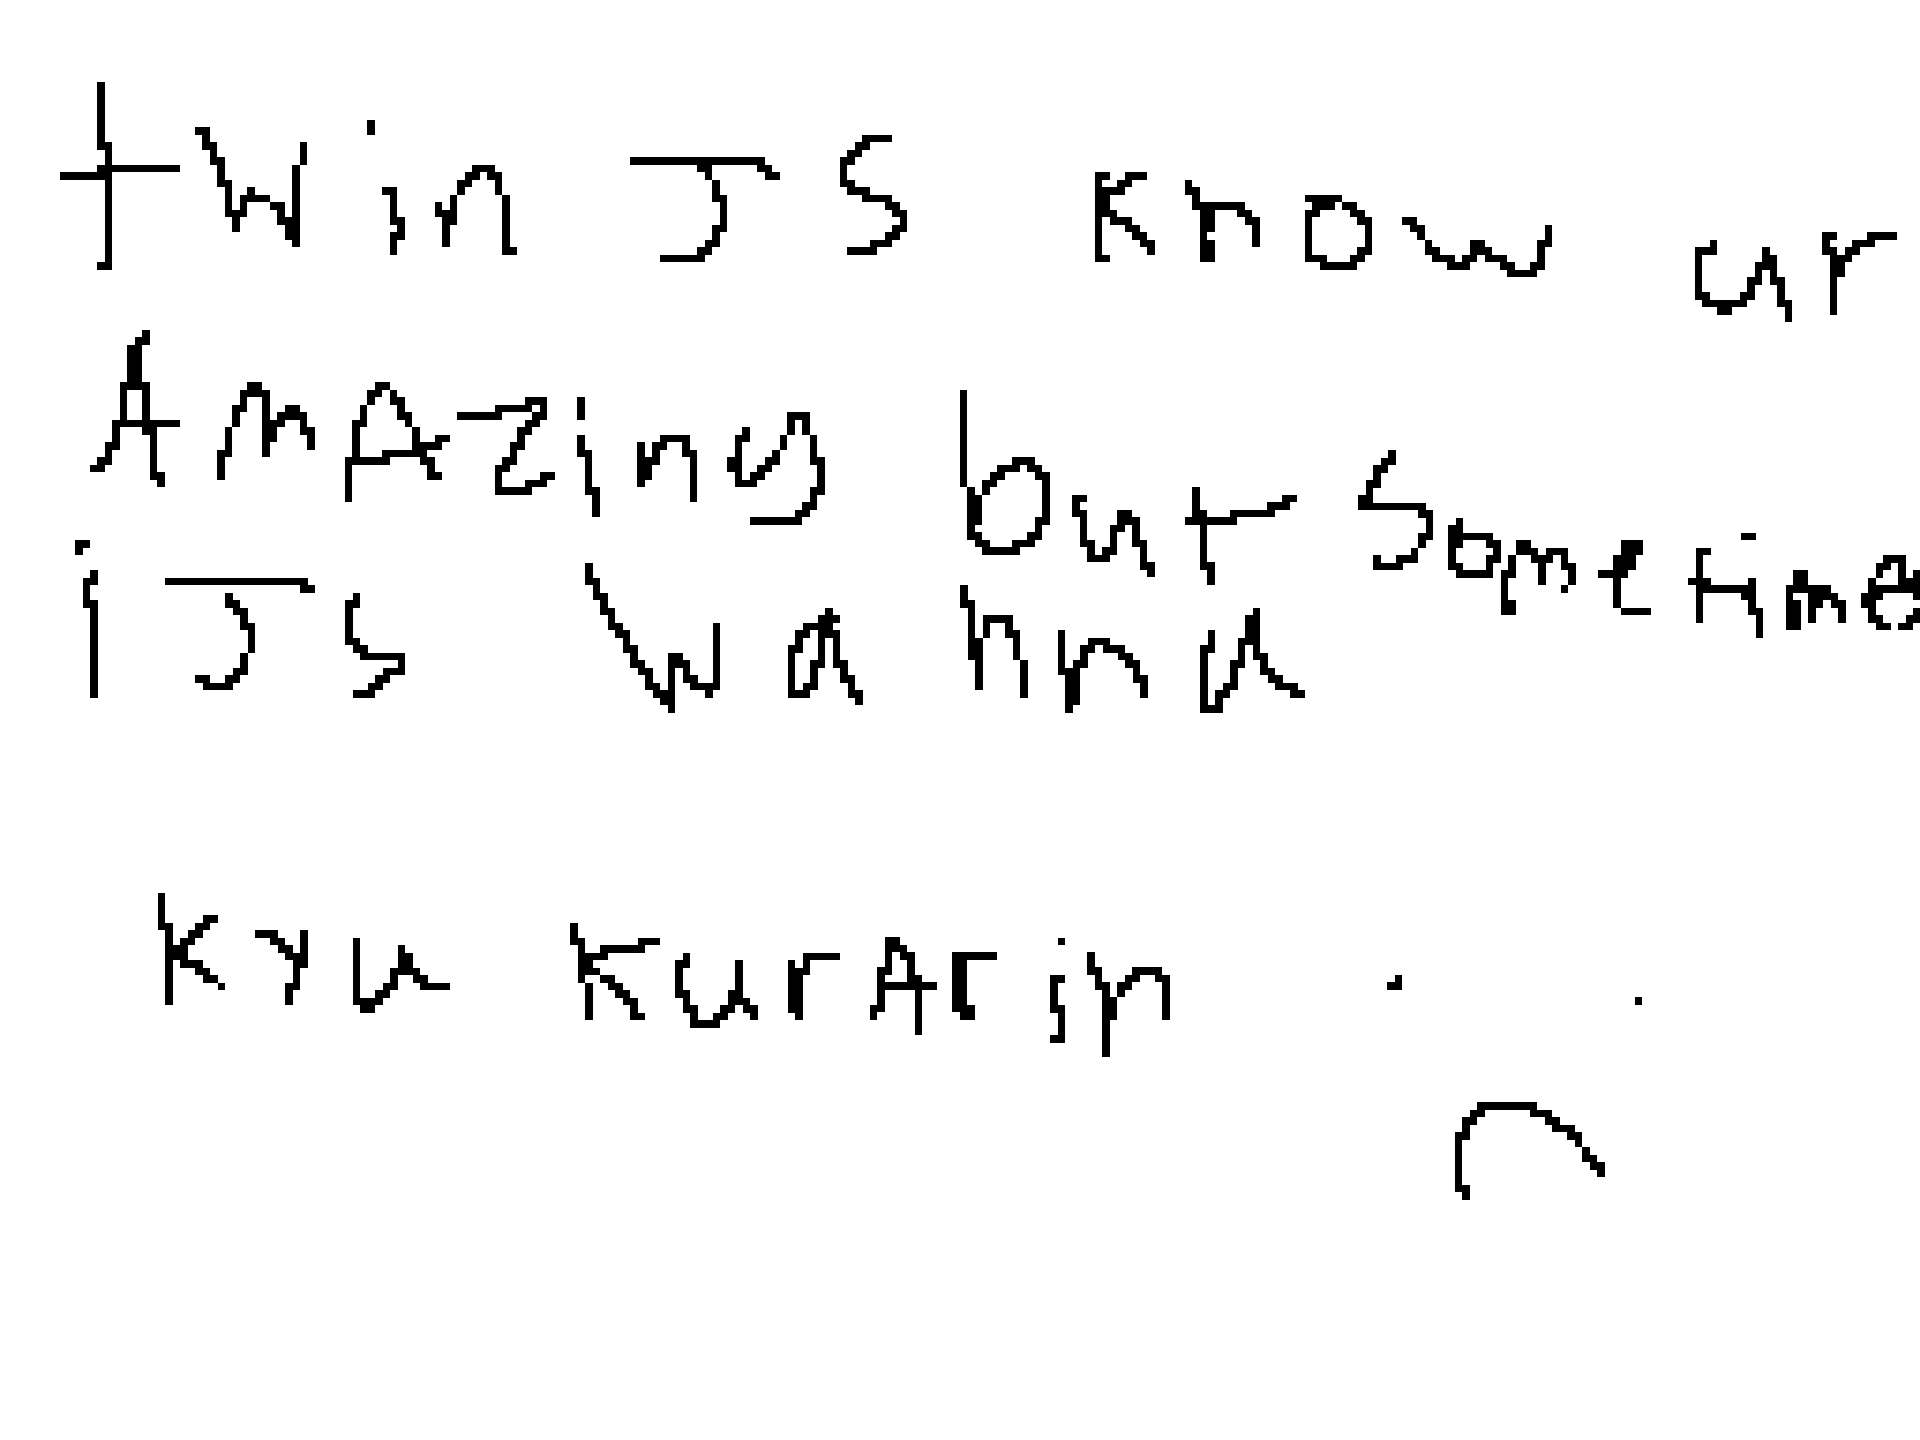 twin JS know ur
AmAzing but sometime
i Js wanna
kyu kurArin